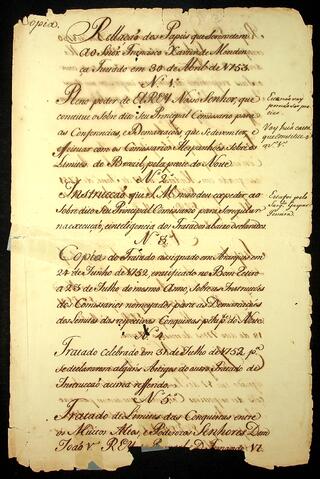 Copia.
Rellação dos Papeis que se remetem
ao Snr Francisco Xavier de Mendon
ça Furtado em 30 de Abril de 1753
N. 1.
Pleno poder de ElREY Nosso Senhor, que
constitue o sobredito Seu Principal Comissario para
as Conferencias, e Demarcaçoens que se devem ter e
effeituar com os Comissarios Hespanhoes sobre os
Limites do Brazil pela parte do Norte
N. 2.
Instrucção que S. Mag. mandou expedir ao
Sobredito Seu Principal Comissario para se regular
na execução, e inteligencia dos Tratados abaixo declarados
N. 3.
Copia do Tratado assignado em Aranjues em
24 de Junho de 1752, e ratificado no Bom Retiro
a 23 de Julho do mesmo Anno, sobre as Instruçoens
dos Comissarios nomeados para as Demarcaçoens
dos Limites das respectivas Conquistas pela p.te do Norte
N. 4.
Tratado celebrado em 31 de Julho de 1752 p.a
se declararem alguns Artigos do outro Tratado de
Instrucção acima referido
N. 5.
Tratado de Limites das Conquistas entre
os Muitos Altos, e Poderosos Senhores Dom
João V. REY de Portugal, e D. Fernando VI.
Esta não vay
por
Vay huã carta
que
Estas